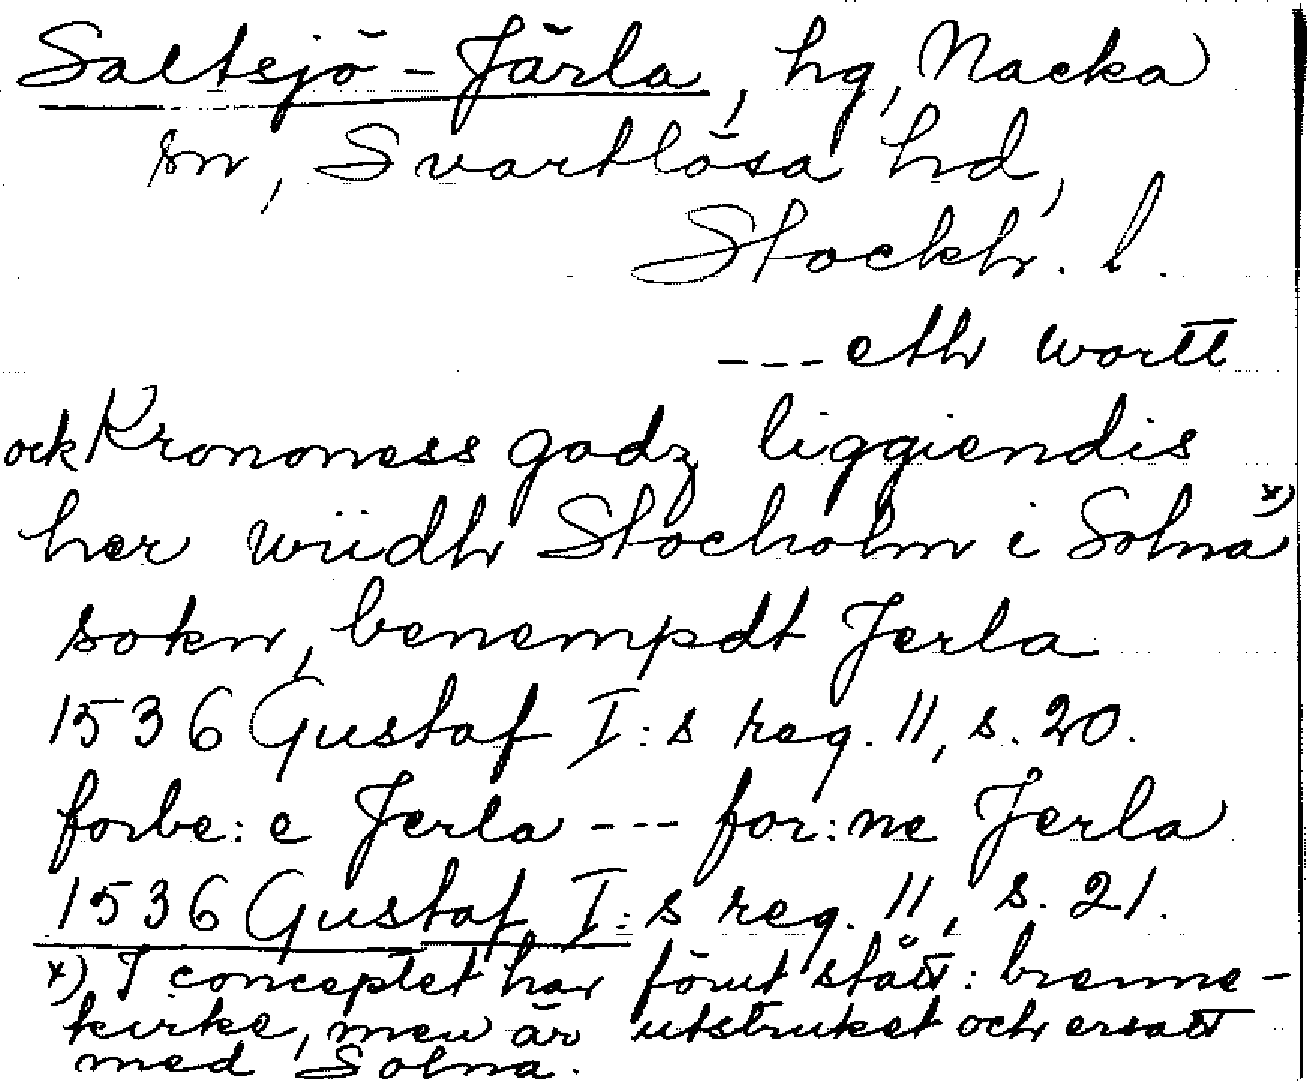 Saltsjö-Järla, hg, Nacka
sn, Svartlösa hd,
Stockh. l.
--- eth wortt
ock Krononess godz liggiendis
her wiidh Stocholm i Solna x)
sokn, benempdt Jerla
1536 Gustaf I:s reg. 11, s. 20.
forbe:e Jerla --- for:ne Jerla
1536 Gustaf I:s reg. 11, s. 21.
x) I conceptet har förut stått: brenne-
kirke, men är utstruket och ersatt
med Solna.